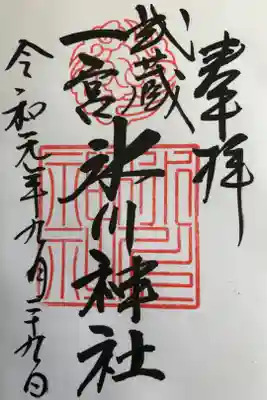 奉拝
武蔵
一宮
氷川神社
令和元年九月二十九日